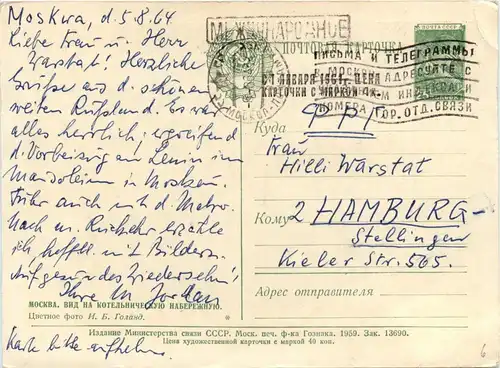 Moskwa, d. 5.8.64
Liebe Frau u. Herr
Warstat! Herzliche
Grüße aus d. schönen
weiten Rußland. Es war
alles herrlich, ergreifend
d. Vorbeizug an Lenin im
Mausoleum in Moskau.
auch mit d. Metro.
Nach m. Rückkehr erzähle
ich, hofftl. mit Bildern.
Auf gesundes Wiedersehn!
Ihre M.
МОСКВА. ВИД НА КОТЕЛЬНИЧЕСКУЮ НАБЕРЕЖНУЮ.
Цветное фото И. Б. Голанд.
Karte bitte aufheben.
МЕЖДУНАРОДНОЕ
ПОЧТА СССР
ПОЧТОВАЯ КАРТОЧКА
С 1 ЯНВАРЯ 1961 г. ЦЕНА
КАРТОЧКИ С МАРКОЙ 4 к.
ПИСЬМА И ТЕЛЕГРАММЫ
АДРЕСУЙТЕ С
НОМЕРА ГОР. ОТД. СВЯЗИ
Куда
Frau
Hilli Warstat
Кому 2 HAMBURG-
Stellingen
Kieler Str. 565.
Адрес отправителя
Издание Министерства связи СССР. Моск. печ. ф-ка Гознака. 1959. Зак. 13690.
Цена художественной карточки с маркой 40 коп.
6